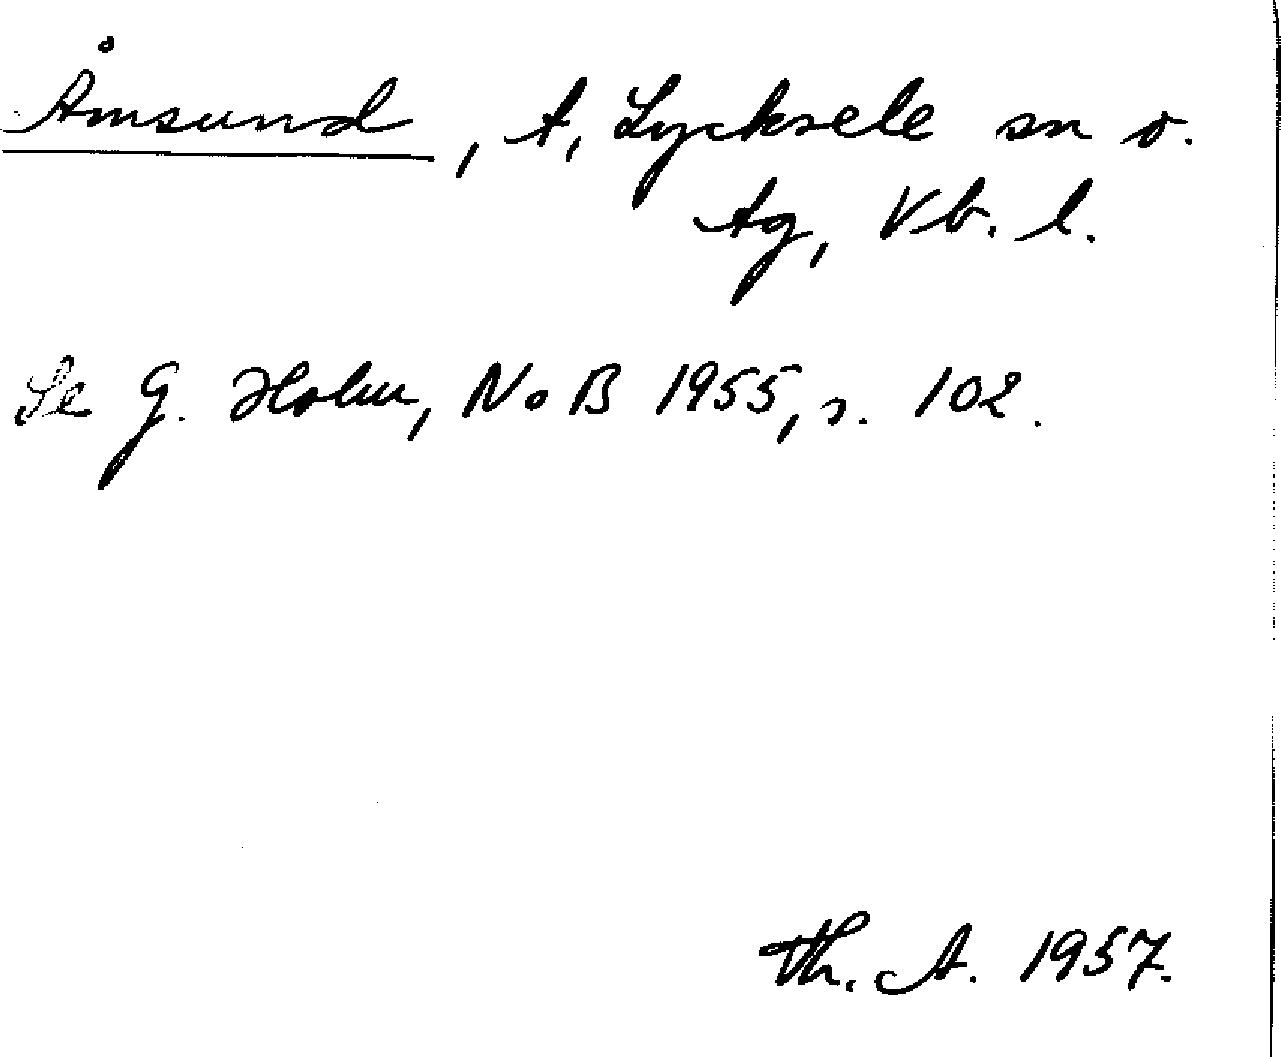 Åmsund, A, Lycksele sn o.
tg, Vb. l.
Se G. Holm, NoB 1955, s. 102.
Th. A. 1957.